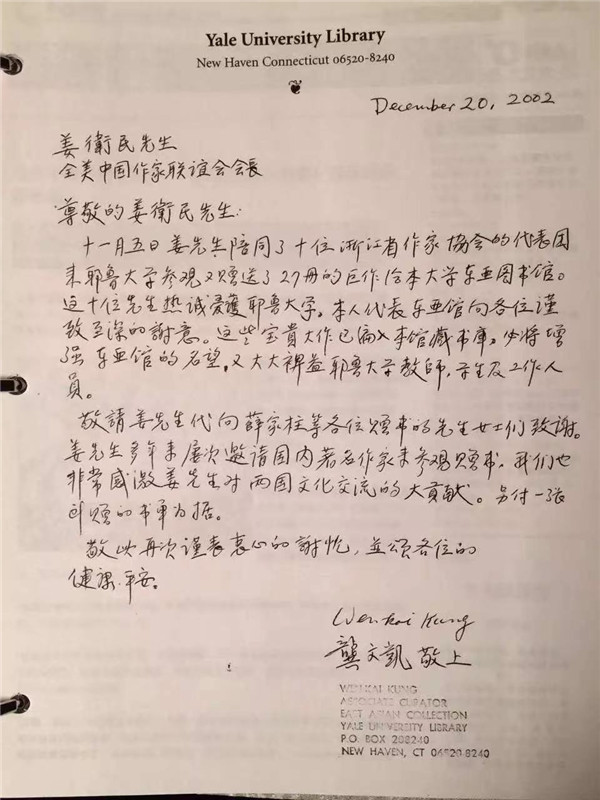 Yale University Library
New Haven Connecticut 06520-8240
December 20, 2002
姜衛民先生
全美中国作家联谊会会長
尊敬的姜衛民先生:
十一月五日姜先生陪同了十位浙江省作家協会的代表团
来耶鲁大学参观又赠送了27册的巨作给本大学东亚图书馆。
这十位先生热诚爱護耶鲁大学。本人代表东亚馆向各位谨
致至深的謝意。这些宝貴大作已编入本馆藏书庫。必将增
强东亚馆的名望,又大大裨益耶鲁大学教师,学生及工作人
員。
敬請姜先生代向薛家柱等各位赠书的先生女士们致谢。
姜先生多年来屡次邀请国内著名作家来参观赠书,我们也
非常感激姜先生对两国文化交流的大貢献。另付一张
所赠的书单为据。
敬此再次謹表衷心的謝忱,並頌各位的
健康平安。
Wenkai Kung
龔文凱 敬上
WEN-KAI KUNG
ASSOCIATE CURATOR
EAST ASIAN COLLECTION
YALE UNIVERSITY LIBRARY
P.O. BOX 208240
NEW HAVEN, CT 06520-8240